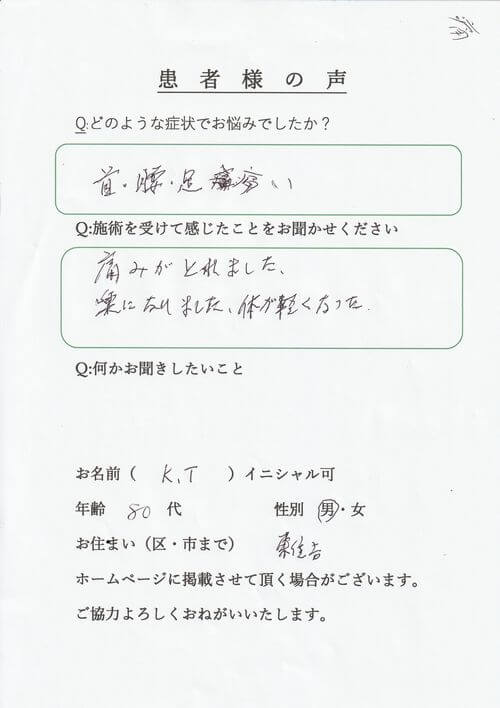 痛
患者様の声
Q:どのような症状でお悩みでしたか？
首・腰・足 痛い
Q:施術を受けて感じたことをお聞かせください
痛みがとれました、
楽になりました、体が軽くなった.
Q:何かお聞きしたいこと
お名前（ K.T ）イニシャル可
年齢 80 代 性別 男・女
お住まい（区・市まで） 東住吉
ホームページに掲載させて頂く場合がございます。
ご協力よろしくおねがいいたします。